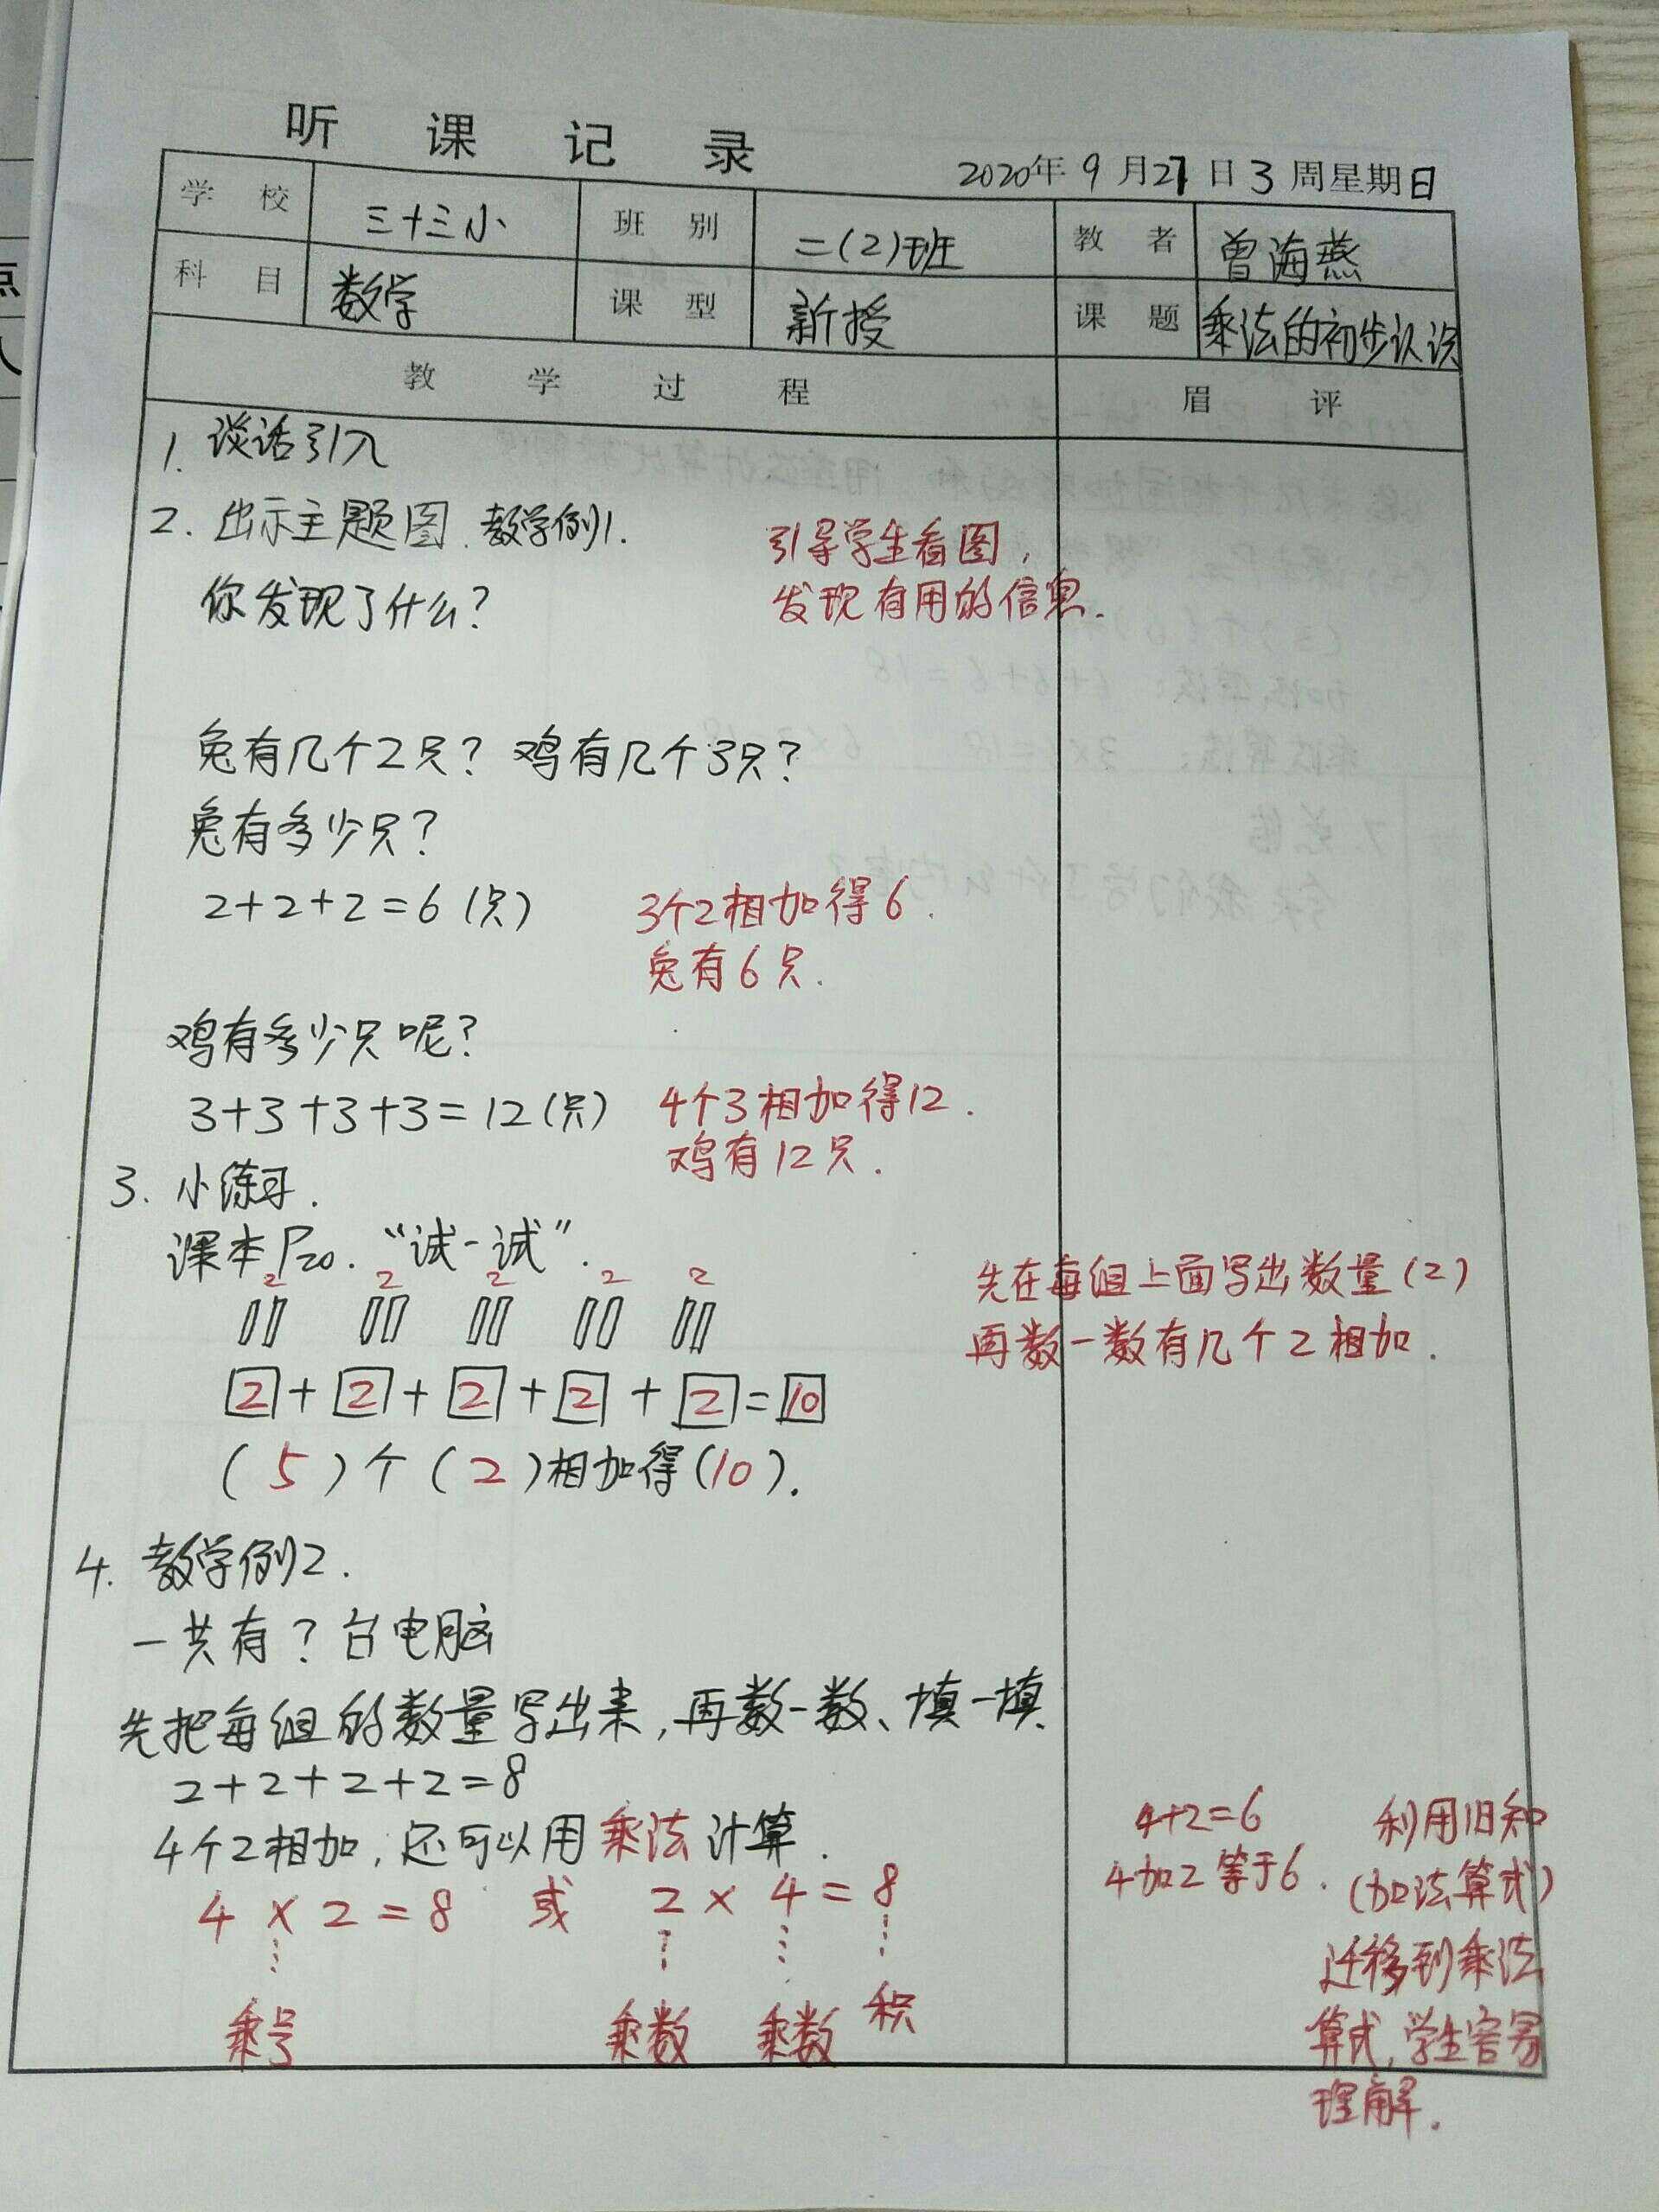 听 课 记 录
2020年 9 月 27 日 3 周星期日
学 校 三十三小 班 别 二(2)班 教 者 曾海燕
科 目 数学 课 型 新授 课 题 乘法的初步认识
教 学 过 程 眉 评
1. 谈话引入
2. 出示主题图. 教学例1.
引导学生看图,
你发现了什么?
发现有用的信息.
兔有几个2只? 鸡有几个3只?
兔有多少只?
2+2+2=6(只) 3个2相加得6.
兔有6只.
鸡有多少只呢?
3+3+3+3=12(只) 4个3相加得12.
鸡有12只.
3. 小练习.
课本P20. “试一试”.
2 2 2 2 2
先在每组上面写出数量(2)
再数一数有几个2相加.
2+2+2+2+2=10
(5)个(2)相加得(10).
4. 教学例2.
一共有?台电脑
先把每组的数量写出来,再数一数、填一填.
2+2+2+2=8
4个2相加,还可以用乘法计算.
4×2=8 或 2×4=8
乘号 乘数 乘数 积
4+2=6
4加2等于6.
利用旧知
(加法算式)
迁移到乘法
算式,学生容易
理解.